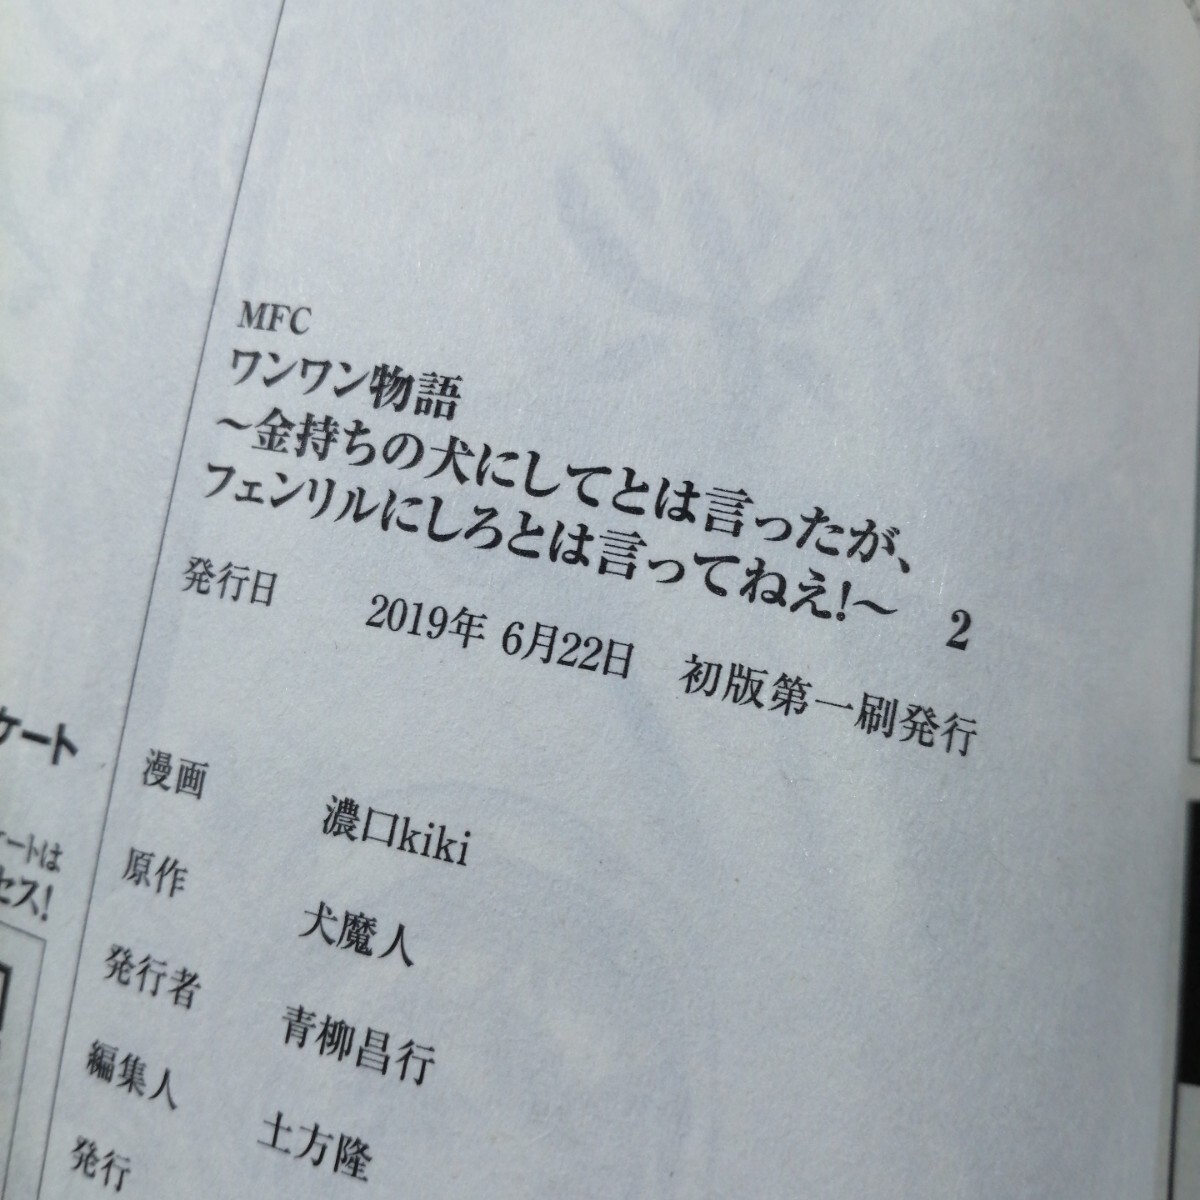 MFC
ワンワン物語
～金持ちの犬にしてとは言ったが、
フェンリルにしろとは言ってねえ!～ 2
発行日 2019年 6月22日 初版第一刷発行
漫画 濃口kiki
原作 犬魔人
発行者 青柳昌行
編集人 土方隆
発行
ケート
ートは
セス!